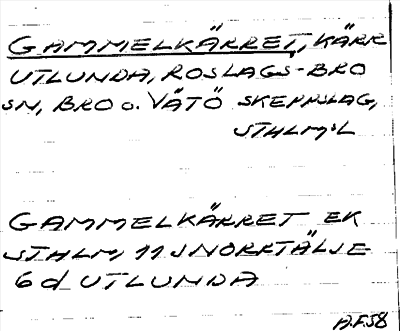 GAMMELKÄRRET, KÄRR
UTLUNDA, ROSLAGS-BRO
SN, BRO o. VÄTÖ SKEPPSLAG,
STHLMS L
GAMMELKÄRRET EK
STHLM, 11 J NORRTÄLJE
6 d UTLUNDA
A.F.58